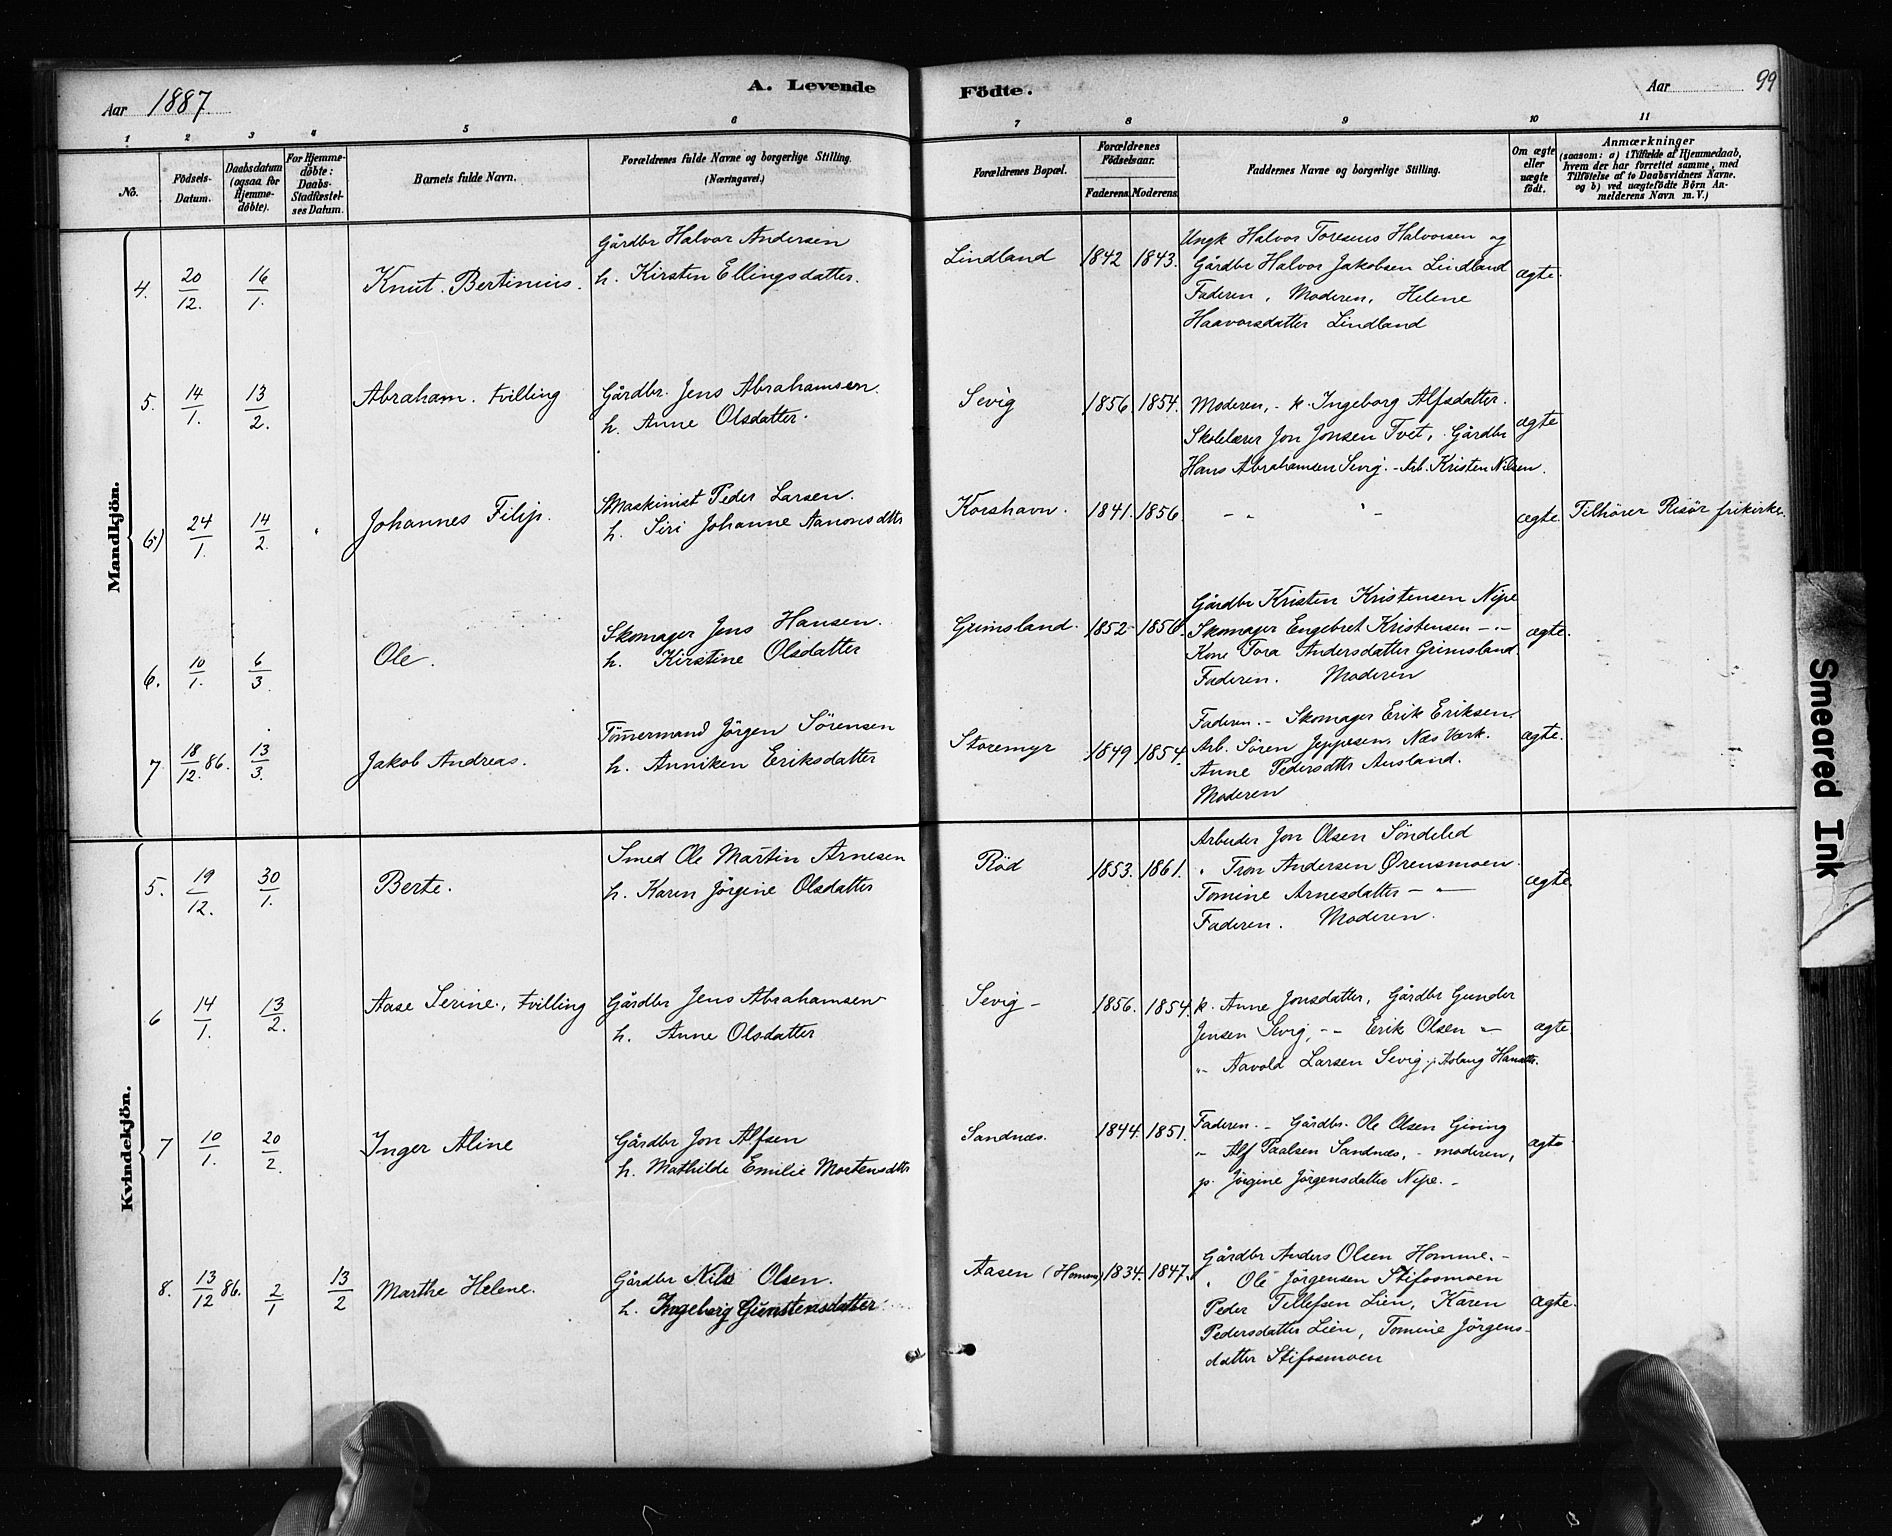 Aar 1887.
A. Levende
Födte.
Aar
99
1
2
3
4
5
6
7
8
9
10
11
No.
Födsels-
Datum.
Daabsdatum
(ogsaa for
Hjemme-
döbte).
For Hjemme-
döbte:
Daabs-
Stadfæstel-
ses Datum.
Barnets fulde Navn.
Forældrenes fulde Navne og borgerlige Stilling.
(Næringsvei.)
Forældrenes Bopæl.
Forældrenes
Födselsaar.
Faderens.
Moderens.
Faddernes Navne og borgerlige Stilling.
Om ægte
eller
uægte
födt.
Anmærkninger
(saasom: a) i Tilfælde af Hjemmedaab,
hvem der har forrettet samme, med
Tilföielse af to Daabsvidners Navne.
og b) ved uægtefödte Börn An-
melderens Navn m. V.)
Mandkjön.
4. 20/12. 16/1. Knut Bertinius.
Gårdbr Halvor Andersen
h. Kirsten Ellingsdatter.
Lindland 1842 1843.
Ungk Halvor Toresens Halvorsen og
Gårdbr Halvor Jakobsen Lindland
Faderen, Moderen, Helene
Haavorsdatter Lindland
ægte.
5. 14/1. 13/2. Abraham. tvilling
Gårdbr. Jens Abrahamsen.
h. Anne Olsdatter.
Sevig 1856 1854.
Moderen, - k. Ingeborg Alfsdatter.
Skolelærer Jon Jonsen Tvet, Gårdbr
Hans Abrahamsen Sevig. - Arb. Kristen Nilsen.
ægte
6) 24/1. 14/2. Johannes Filip.
Maskinist Peder Larsen.
h. Siri Johanne Aanonsdttr
Korshavn. 1841. 1856.
ægte. Tilhører Risør frikirke.
6. 10/1. 6/3. Ole.
Skomager Jens Hansen.
h. Kirstine Olsdatter
Grimsland. 1852 1856.
Gårdbr Kristen Kristensen Nipe
Skomager Engebret Kristensen - " -
Kone Tora Andersdatter Grimsland.
Faderen. Moderen
ægte.
7. 18/12. 86. 13/3. Jakob Andreas.
Tömmermand Jörgen Sörensen
h. Anniken Eriksdatter
Storemyr 1849 1854.
Faderen. - Skomager Erik Eriksen.
Arb. Sören Jeppesen, Næs Værk.
Anne Pedersdttr Ausland.
Moderen
ægte.
Kvindekjön.
5. 19/12. 30/1. Berte.
Smed Ole Martin Arnesen
h. Karen Jörgine Olsdatter
Rød 1853. 1861.
Arbeider Jon Olsen Söndeled
" Tron Andersen Ørensmoen.
Tomine Arnesdatter - " -
Faderen. Moderen.
ægte.
6 14/1. 13/2. Aase Serine., tvilling
Gårdbr Jens Abrahamsen
h. Anne Olsdatter
Sevig - 1856. 1854.
k. Anne Jonsdatter, Gårdbr Gunder
Jensen Sevig, - - Erik Olsen "
" Aavold Larsen Sevig.
ægte.
7 10/1. 20/2. Inger Aline
Gårdbr Jon Alfsen
h. Mathilde Emilie Mortensdttr
Sandnæs. 1844. 1851.
Faderen. - Gårdbr. Ole Olsen Giving
" Alf Paalsen Sandnæs, - moderen,
p. Jörgine Jörgensdatter Nipe. -
ægte
8. 13/12 86. 2/1 13/2 Marthe Helene.
Gårdbr Nils Olsen.
h. Ingeborg Gunstensdatter
Aasen (Homme) 1834. 1847.
Gårdbr Anders Olsen Homme. -
" Ole Jörgensen Stifosmoen
Peder Tellefsen Lien, Karen
Pedersdatter Lien, Tomine Jörgens-
datter Stifosmoen
ægte.
Smeared Ink